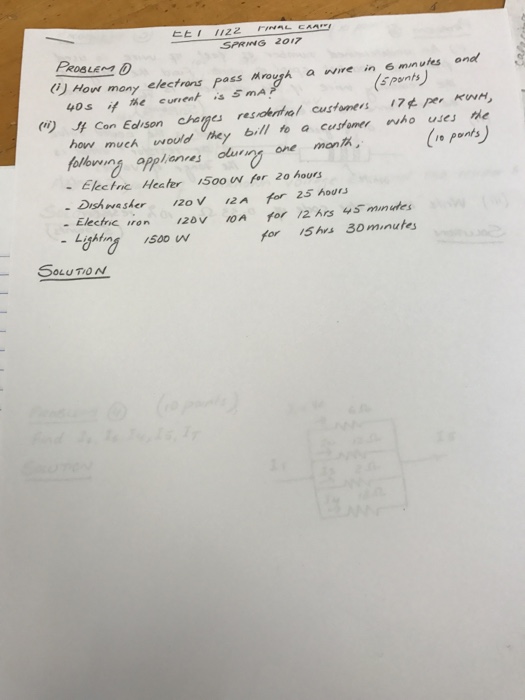 EET 1122 FINAL EXAM
SPRING 2017
PROBLEM ①
(i) How many electrons pass through a wire in 6 minutes and
40s if the current is 5 mA? (5 points)
(ii) If Con Edison charges residential customers 17¢ per KWH,
how much would they bill to a customer who uses the
following appliances during one month. (10 points)
- Electric Heater 1500 W for 20 hours
- Dishwasher 120 V 12 A for 25 hours
- Electric iron 120V 10A for 12 hrs 45 minutes
- Lighting 1500 W for 15 hrs 30 minutes
SOLUTION